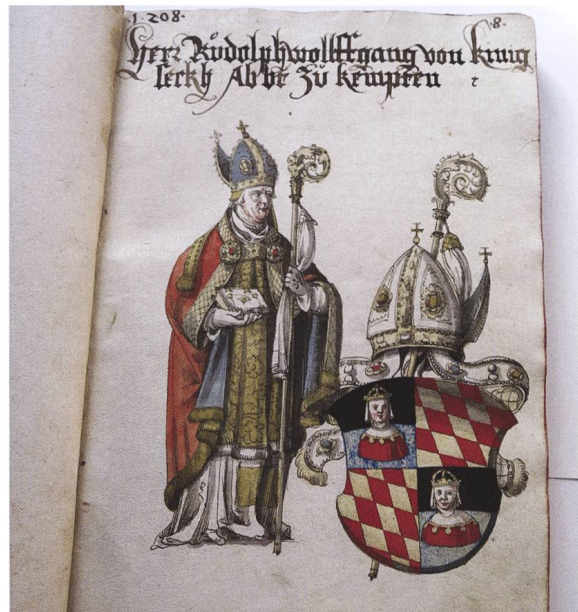 1.208.
.8.
Herr Růdolphwolffgang von Kunig
seckh Abbt Zů kempten